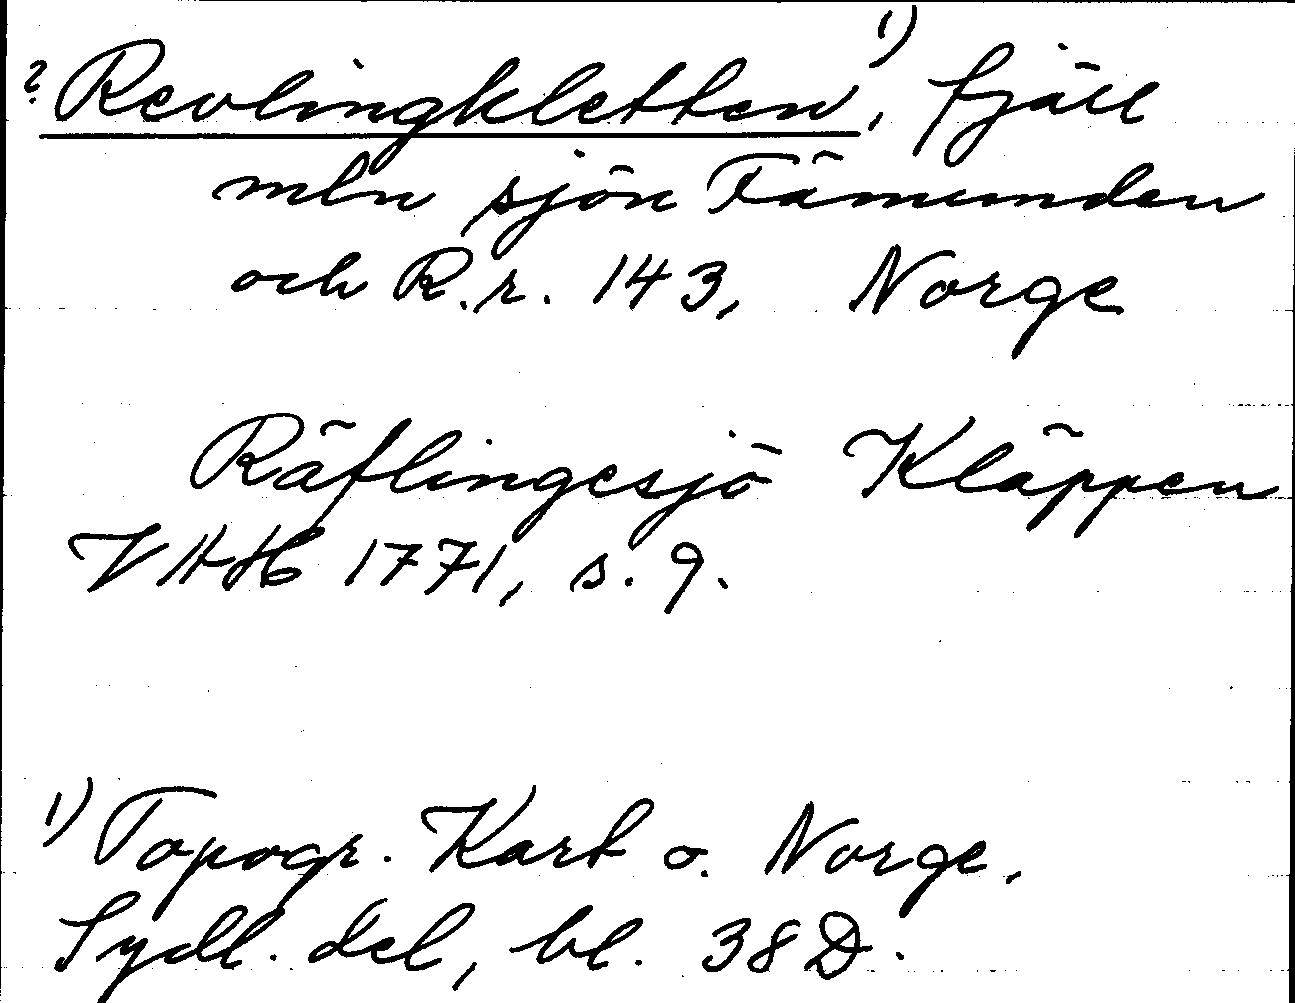 ? Revlingkletten,¹⁾ fjäll
mln sjön Fämunden
och R.r. 143, Norge
Räflingesjö Kläppen
VHH 1771, s. 9.
1) Topogr. Kart o. Norge.
Sydl. del, bl. 38 D.